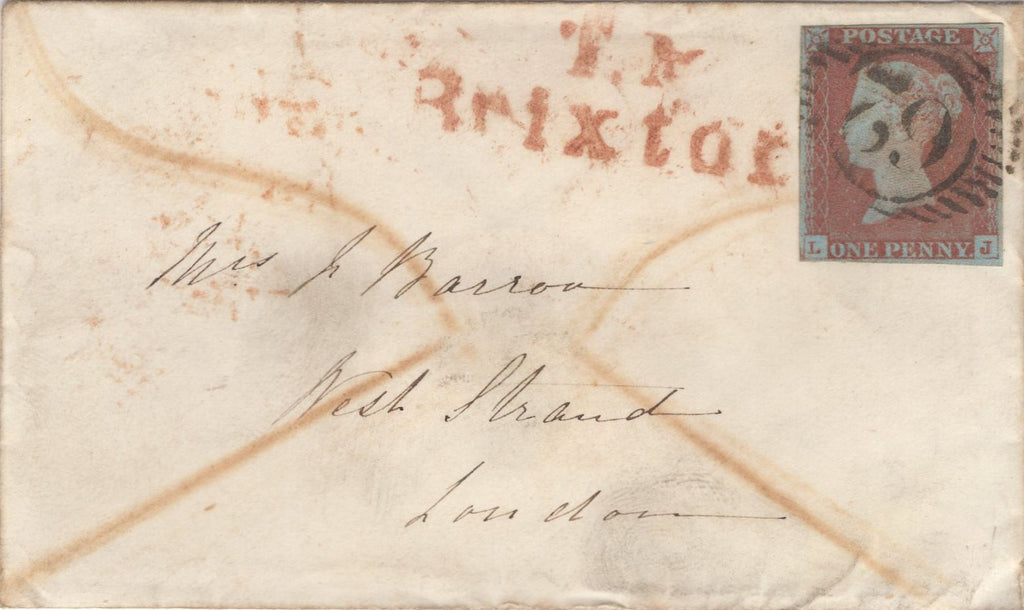 T.P
Brixton
POSTAGE
L ONE PENNY. J
Mrs J Barrow
West Strand
London